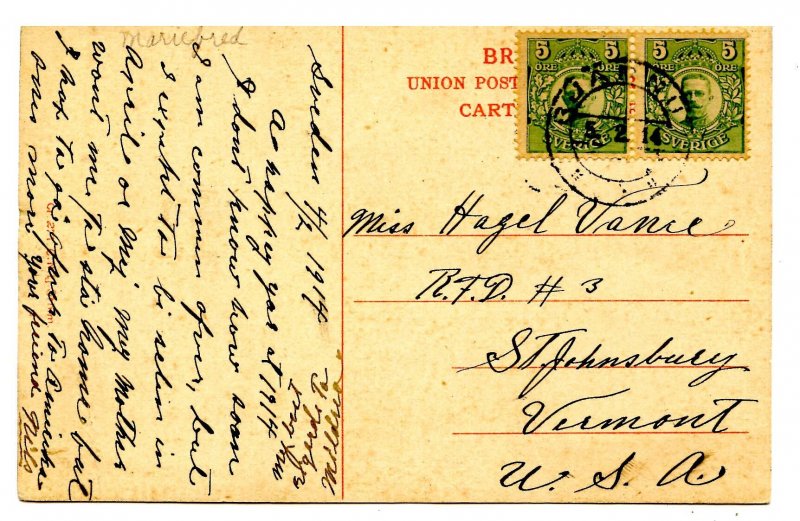 Mariefred
Sweden 4/2 1914
A happey year at 1914
I dont know how soon
I am commen over, but
I exspekt to be selen in
April or Mij my Mother
wont me to sta home but
I hop to go back to America
ones more your friend Nils
BR
UNION POST
CART
5 5
ÖRE ÖRE
SVERIGE
5 5
ÖRE ÖRE
SVERIGE
5 2 14
Miss Hazel Vance
R.F.D. # 3
St Johnsbury
Vermont
U. S. A.